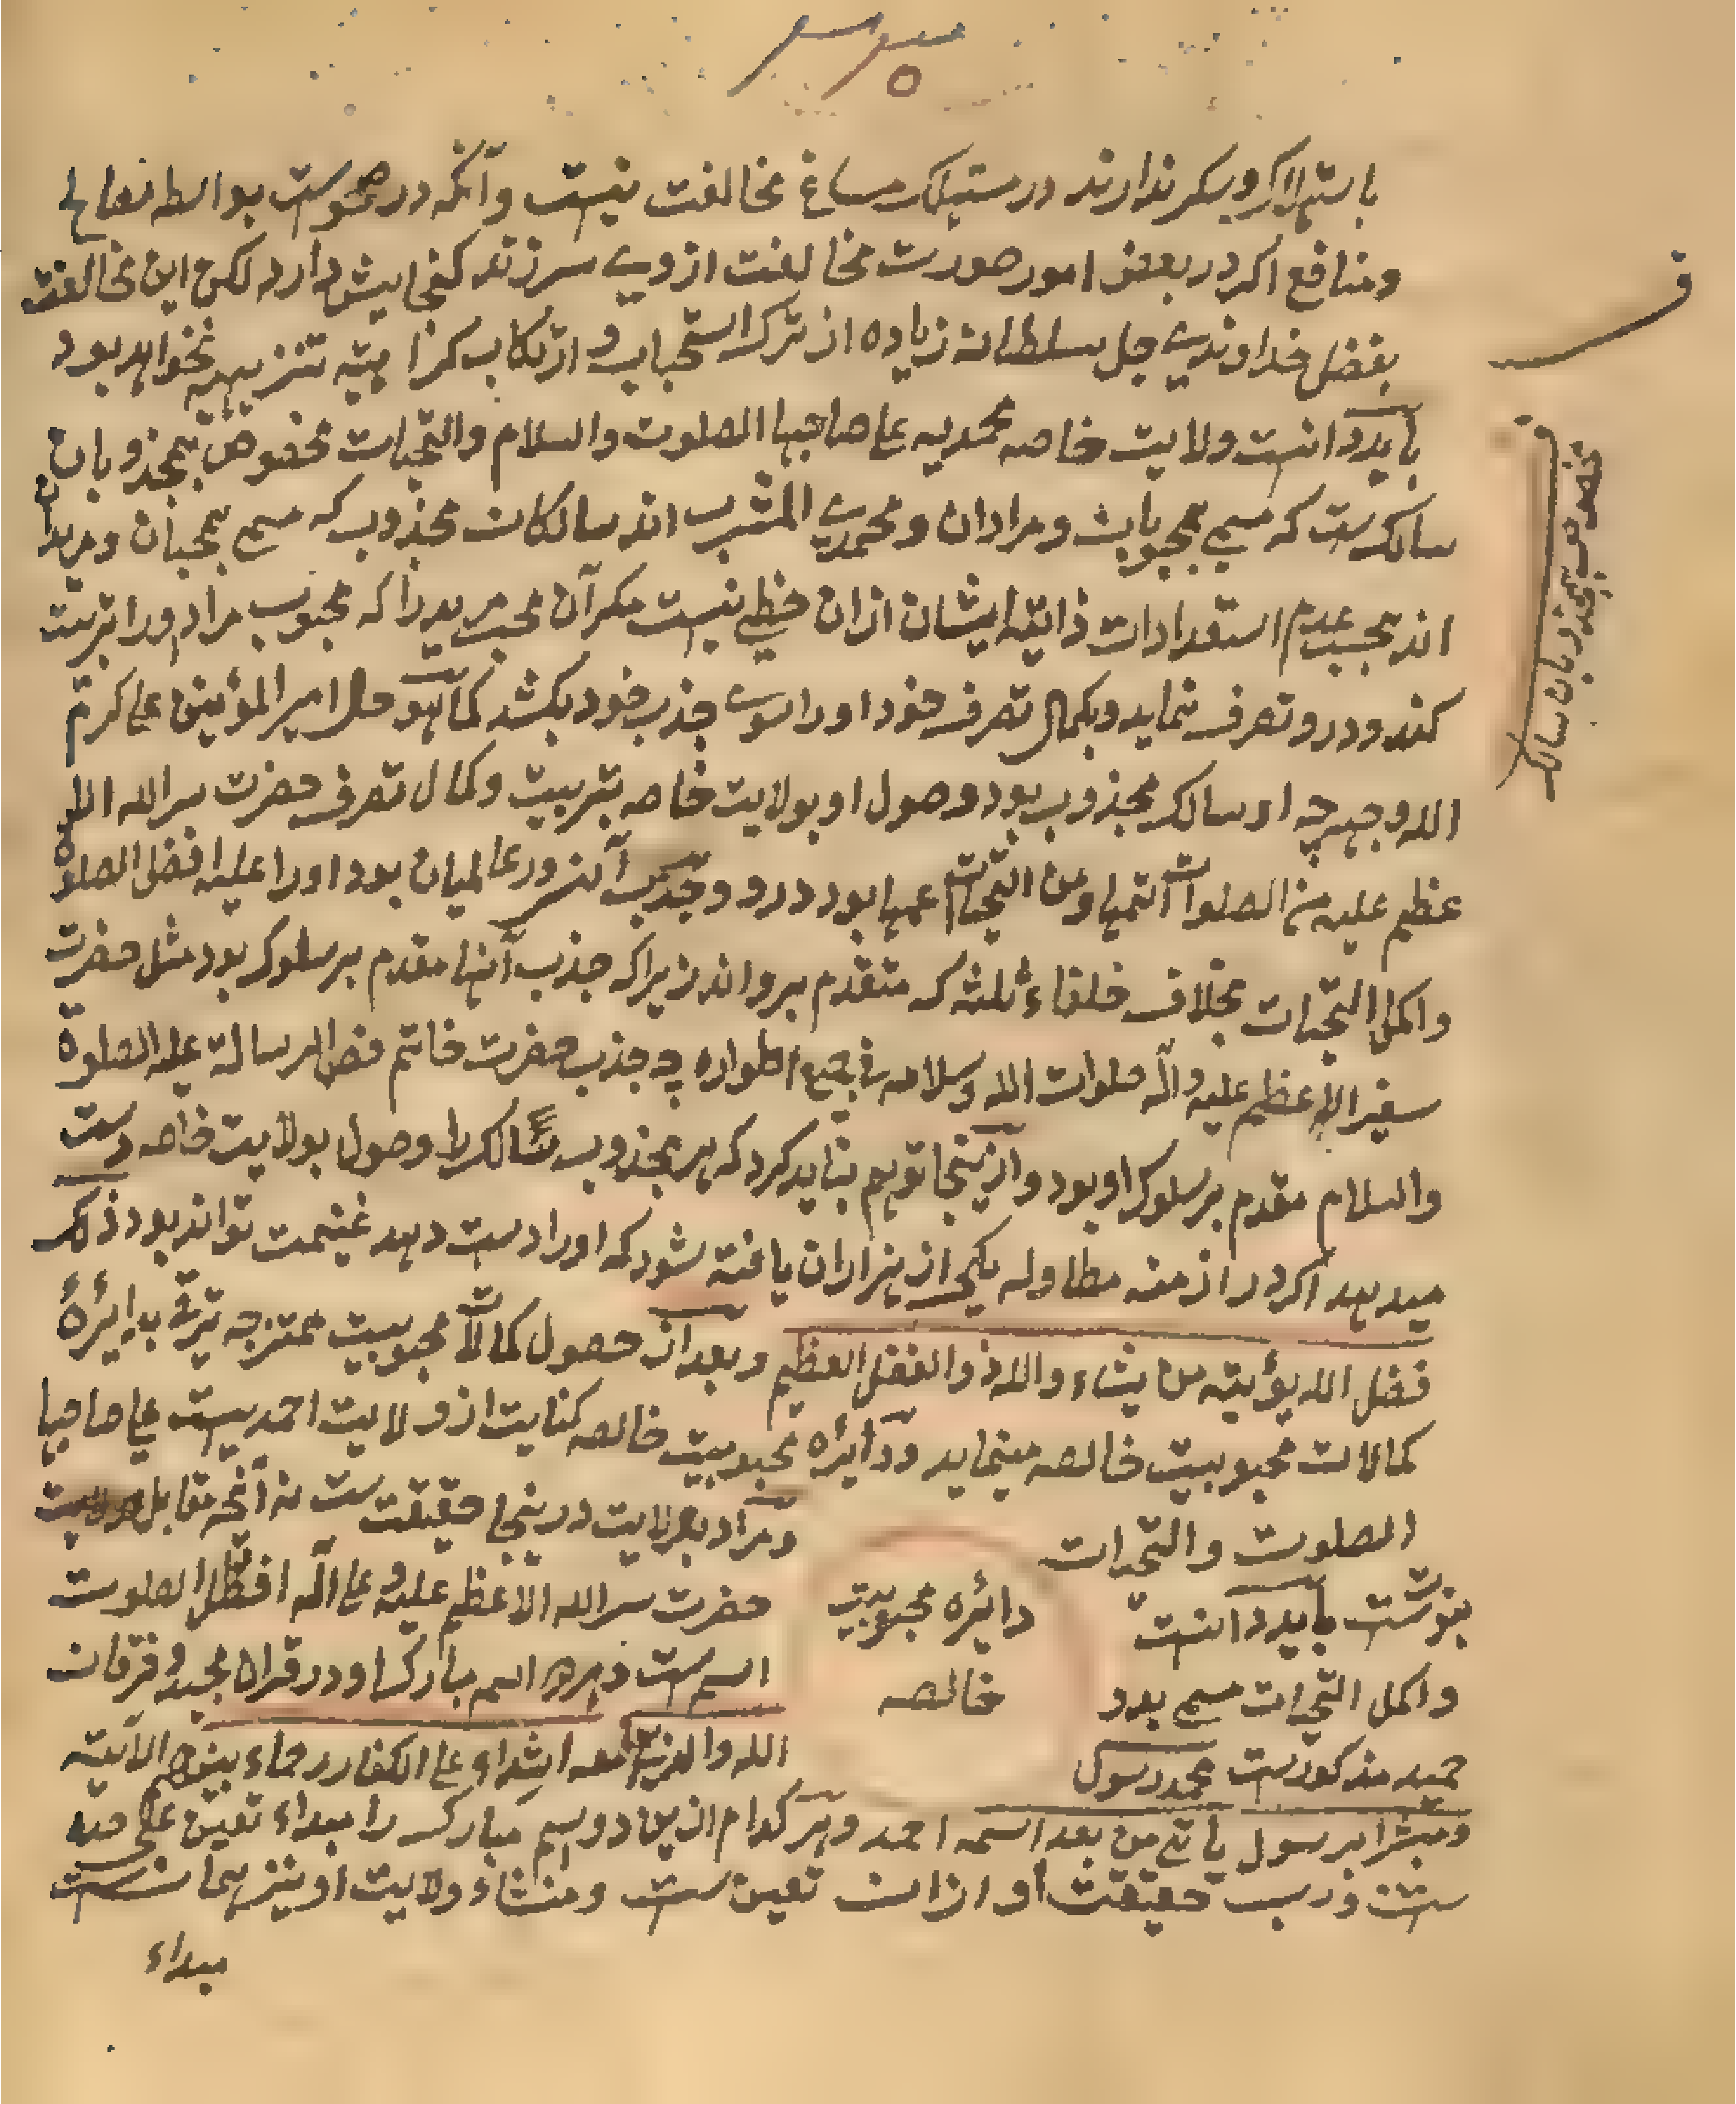 باستهلاک و سکر ندارند در مستهلک مساغ مخالفت نیست و آنکه در صحوست بواسطه مصالح
و منافع اکر در بعض امور صورت مخالفت از وی سر زند کنجایش دارد لکن این مخالفت
بفضل خداوندی جل سلطانه زیاده از ترک استحباب و ارتکاب کراهیته تنزیهیه نخواهد بود
باید دانست ولایت خاصه محمدیه علی صاحبها الصلوت والسلام والتحیات مخصوص بمجذوبان
سالک ست که مسمی بمحبوبان و مرادان و محمدی المشرب اند سالکان مجذوب که مسمی بمحبان و مریدان
اند بحسب عدم استعدادات ذاتیه ایشان ازان حظی نیست مکر آن محب مرید را که محبوب مراد اورا تربیت
کند و درو تصرف نماید و بکمال تصرف خود اورا بسوی جذب خود بکشد کما هو حال امیر المؤمنین علی کرم
الله وجهه چه او سالک مجذوب بود وصول او بولایت خاصه بتربیت و کمال تصرف حضرت سر الله الا
عظم علیه من الصلوات اتمها ومن التحیات عمها بود درو وجذب آنسرور عالمیان بود اورا علیه افضل الصلوة
واکمل التحیات بخلاف خلفاء ثلثه که متقدم برو اند زیرا که جذب آنها مقدم بر سلوک بود مثل حضرت
سفیر الله عظم علیه و آله صلوات الله وسلامه فی جمیع اطواره چه جذب حضرت خاتم فص الرسالة علیه الصلوة
والسلام مقدم بر سلوک او بود و ازینجا توهم نباید کرد که هر مجذوب سالک را وصول بولایت خاصه دست
میدهد اکر در ازمنه متطاوله یکی از هزاران یافته شود که اورا دست دهد غنیمت تواند بود ذلک
فضل الله یؤتیه من یشاء والله ذو الفضل العظیم و بعد از حصول کمالات محبوبیت ممتزجه ترقی بدایرهٔ
کمالات محبوبیت خالصه مینماید و دایرهٔ محبوبیت خالصه کنایت از ولایت احمدیست علی صاحبها
الصلوت والتحیات و مراد بولایت درینجا حقیقت ست نه آنچه مقابل ولایت
نبوتست باید دانست دائره محبوبیت حضرت سر الله الاعظم علیه و علی آله افضل الصلوت
واکمل التحیات مسمی بدو خالصه اسم ست و هر دو اسم مبارک او در قران مجید و فرقان
حمید مذکورست محمد رسول الله والذین معه اشداء علی الکفار رحماء بینهم الآیة
ومبشرا برسول یاتی من بعد اسمه احمد و هر کدام ازین دو اسم مبارک را مبداء تعین علی حده
ست و رب حقیقت او ازان تعین ست و منشاء ولایت او نیز همانست
مبداء
مخصوص بمجذوبان سالک